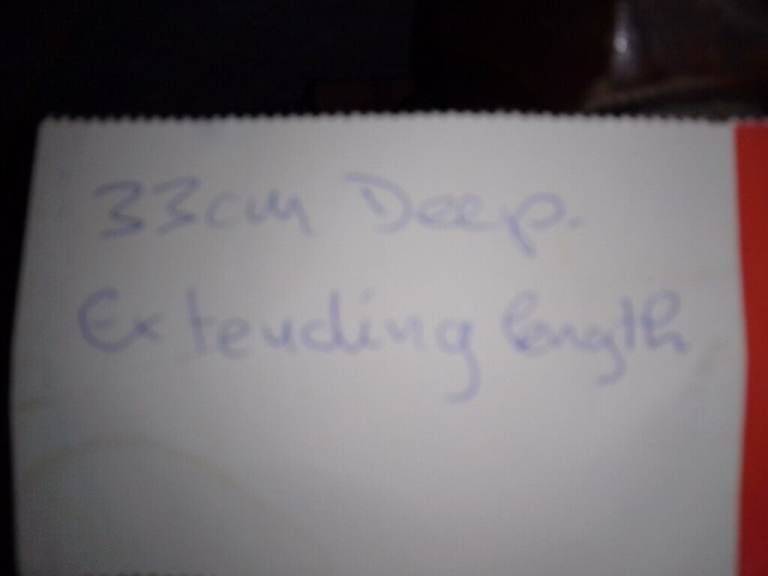 33cm Deep.
Extending length